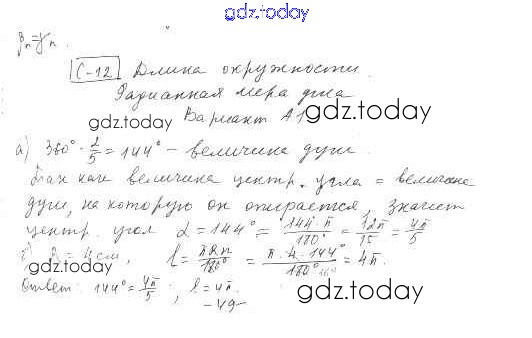 gdz.today
С-12 Длина окружности.
Радианная мера угла
gdz.today
Вариант А1
gdz.today
а) 360° · 2/5 = 144° – величина дуги.
Так как величина центр. угла = величине
дуги, на которую он опирается, значит
центр. угол α = 144° = 144·π/180° = 12π/15 = 4π/5
R = 4 см, l = πRn/180° = π·4·144°/180° = 4π.
gdz.today
gdz.today
Ответ: 144° = 4π/5; l = 4π.
- 49 -
gdz.today